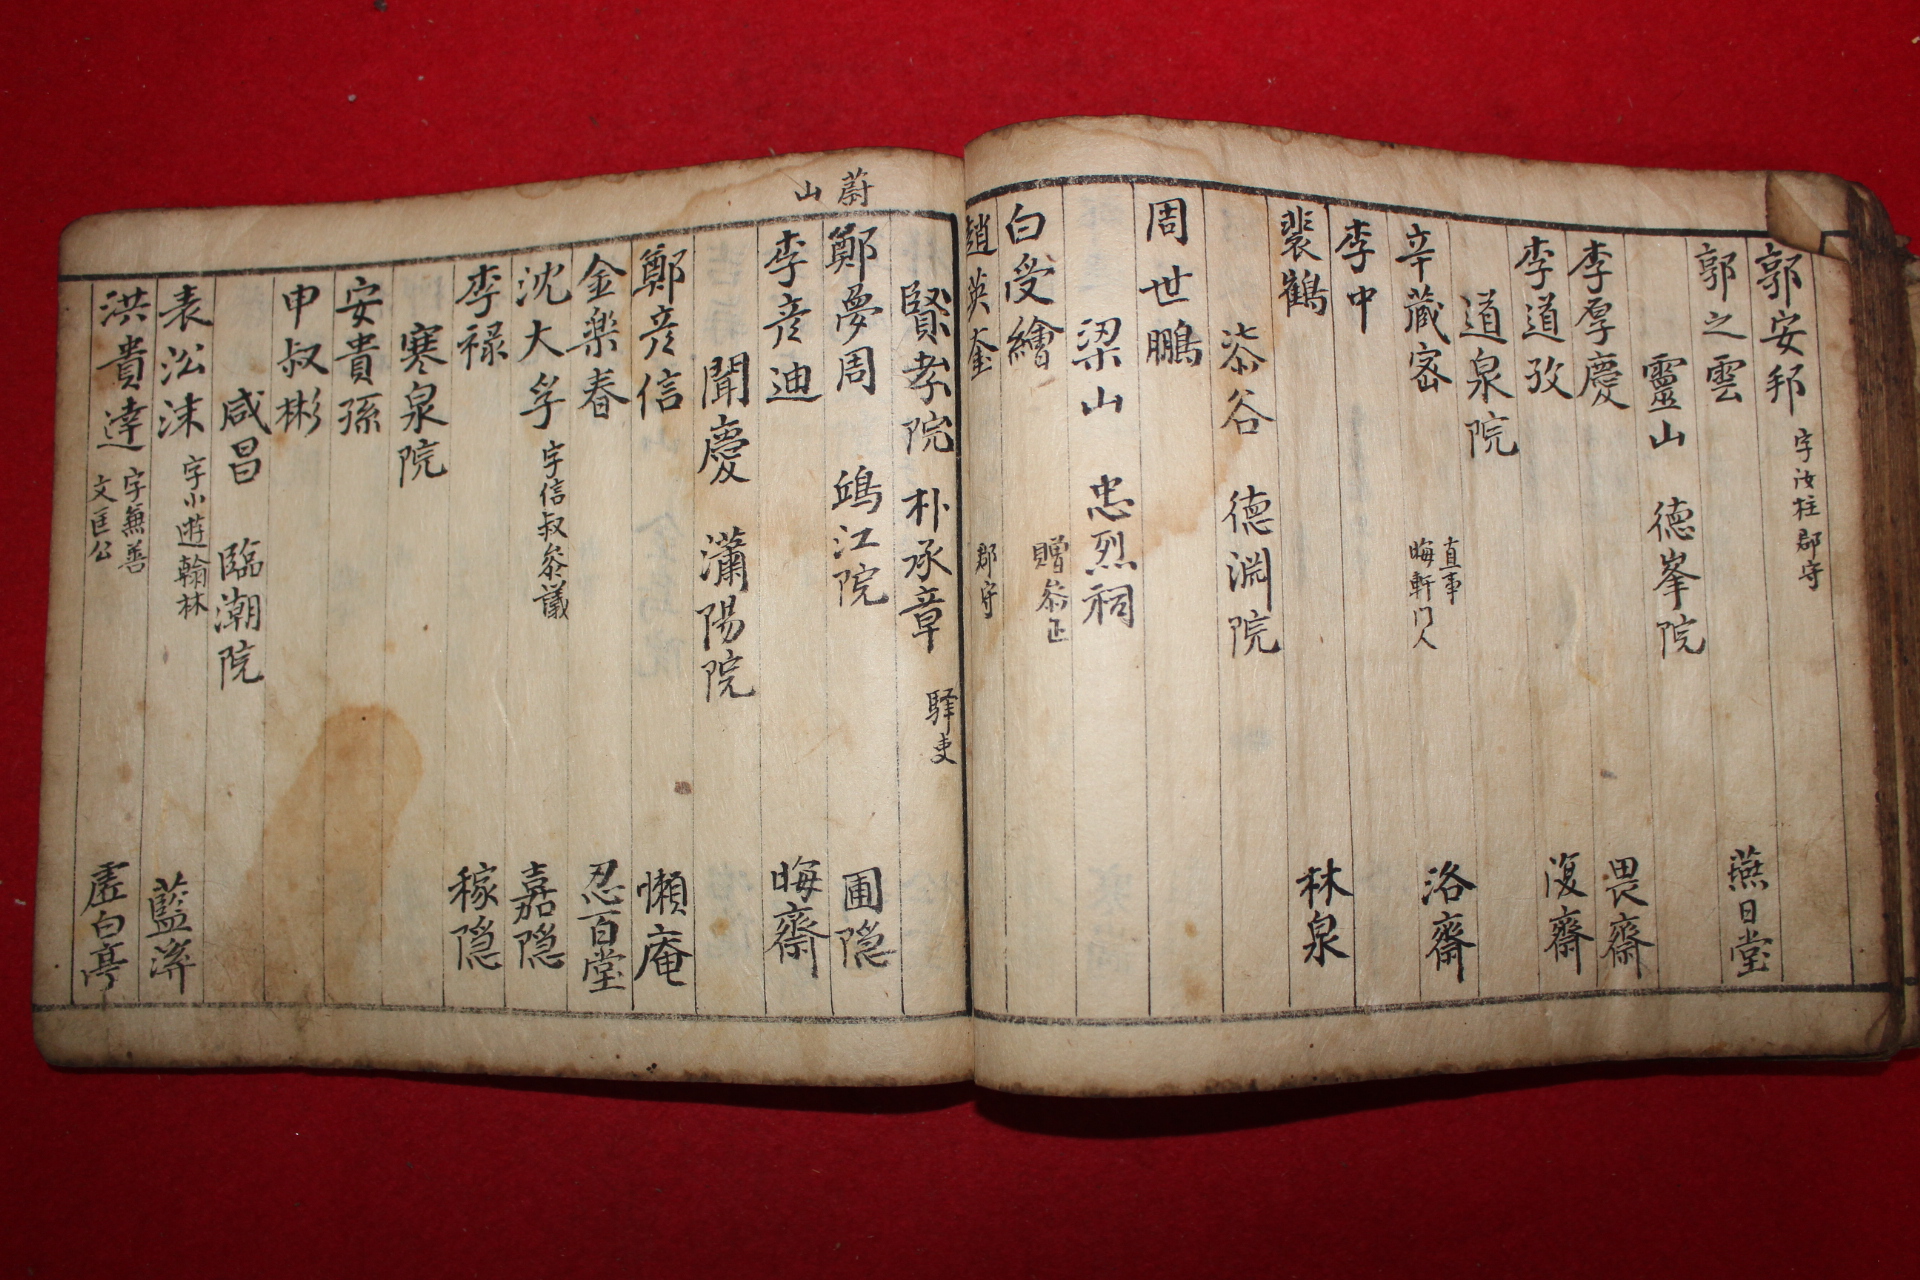 郭安邦 字汝柱 郡守
郭之雲 燕日堂
靈山 德峯院
李厚慶 畏齋
李道孜 復齋
道泉院
辛藏密 直事 晦軒門人 洛齋
李中
裴鶴 林泉
柒谷 德淵院
周世鵬
梁山 忠烈祠
白受繪 贈叅正
趙英奎 郡守
賢孝院 朴承章 驛吏
蔚山
鄭夢周 鴎江院 圃隐
李彦迪 晦齋
聞慶 瀟陽院
鄭彦信 懶庵
金楽春 忍百堂
沈大孚 字信叔叅議 嘉隐
李禄 稼隐
寒泉院
安貴孫
申叔彬
咸昌 臨潮院
表沿沫 字小遊翰林 藍溪
洪貴達 字無善 文匡公 虛白亭